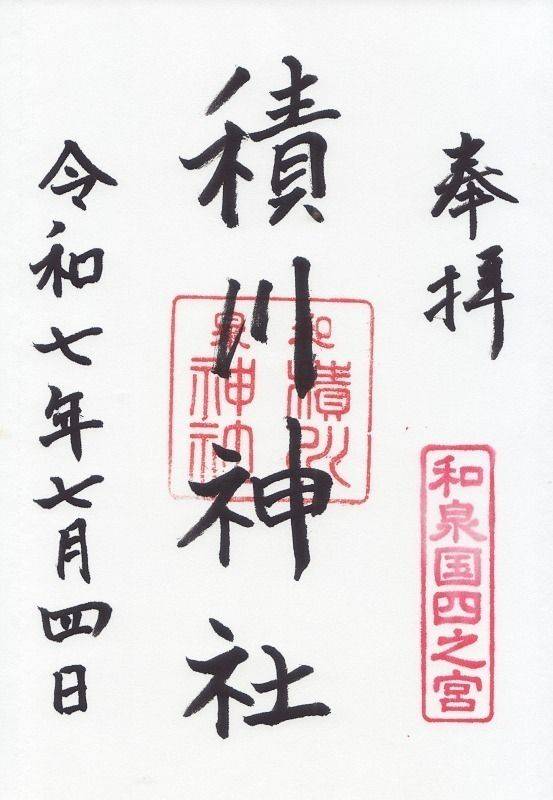 奉拝
和泉国四之宮
積川神社
和泉
積川
神社
令和七年七月四日